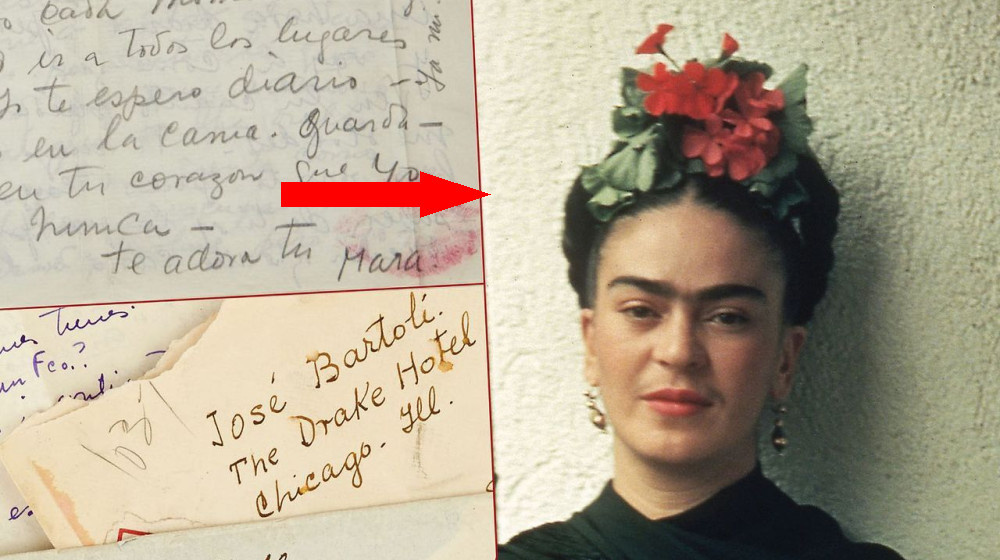 each
ir a todos los lugares
te espero diario – Ya no
en la cama. Guarda –
en tu corazon que yo
nunca –
te adora tu Mara.
tienes.
un Fco.?
José Bartolí.
The Drake Hotel
Chicago. Ill.